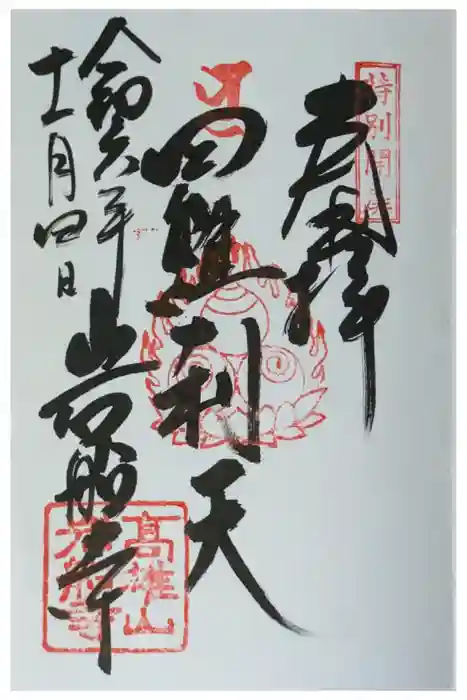 特別開扉
奉拝
天
令和六年
十一月四日
岩船寺
高雄山
岩船寺